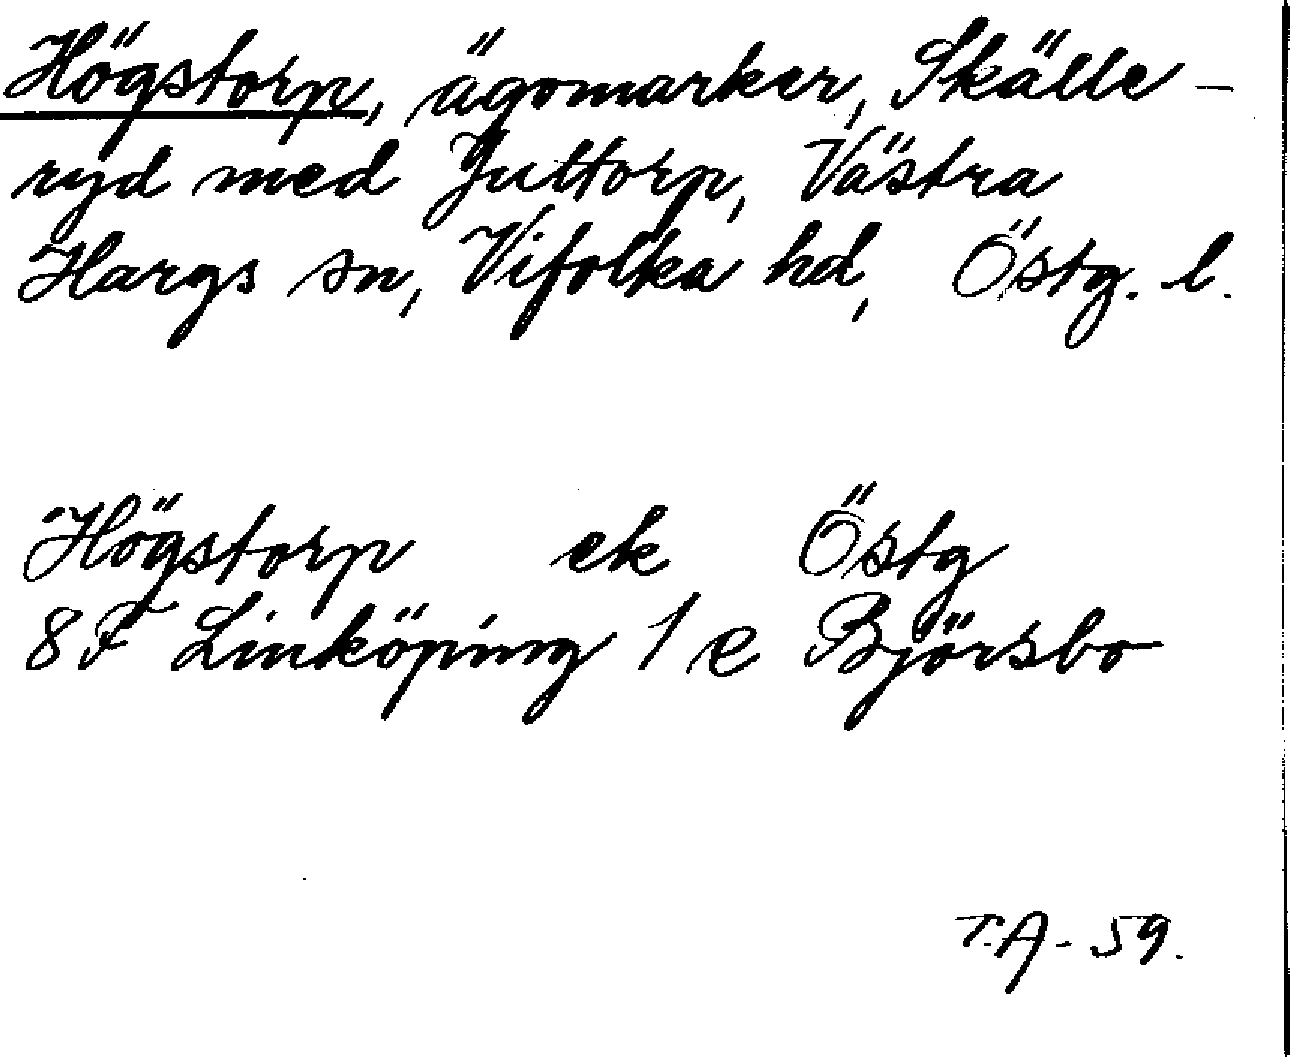 Högstorp, ägomarker, Skälle-
ryd med Juttorp, Västra
Hargs sn, Vifolka hd, Östg. l.
Högstorp ek Östg
8F Linköping 1 e Björsbo
T.A - 59.